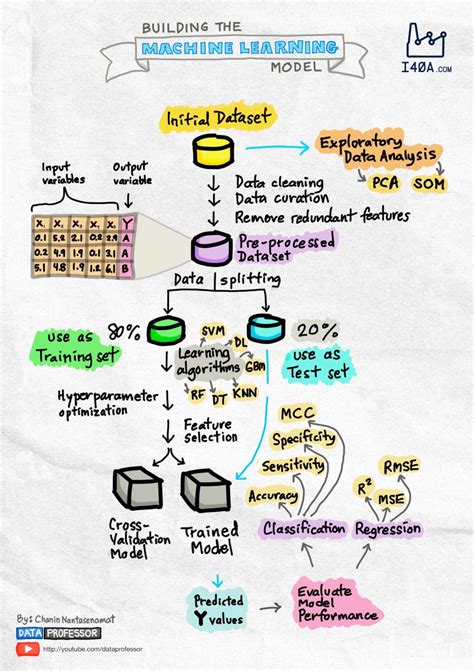 BUILDING THE
MACHINE LEARNING
MODEL
I40A.COM
Initial Dataset
Exploratory
Data Analysis
PCA SOM
Data cleaning
Data curation
Remove redundant features
Input
variables
Output
variable
X₁ X₂ X₃ X₄ Y
0.1 5.2 2.1 0.2 2.9 A
0.2 4.9 1.1 0.6 A
5.1 4.8 1.9 1.2 6.1 B
Pre-processed
Dataset
Data splitting
80%
use as
Training set
20%
use as
Test set
Learning
algorithms
SVM
DL
GBM
KNN
DT
RF
Hyperparameter
optimization
Feature
selection
Cross-
Validation
Model
Trained
Model
MCC
Specificity
Sensitivity
Accuracy
Classification
R²
MSE
RMSE
Regression
Predicted
Y values
Evaluate
Model
Performance
By: Chanin Nantasenamat
DATA PROFESSOR
http://youtube.com/dataprofessor